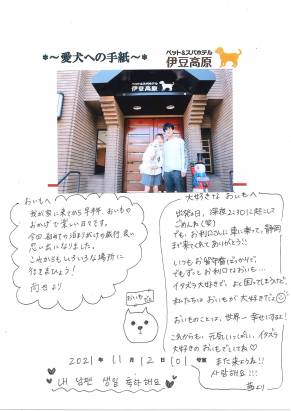 *～愛犬への手紙～*
ペット&スパホテル
伊豆高原
ペット&スパホテル
伊豆高原
おいもへ
我が家に来てから早半年、おいもの
おかげで楽しい日々です。
今回初めての泊まりがけの旅行、良い
思い出になりました。
これからもいろいろな場所に
行きましょう!
大好きな おいもへ
出発の日、深夜2:30に起こして
ごめんね(笑)
でもお利口さんに車に乗って、静岡
まで来てくれてありがとう!!
いつもお留守番ばっかりで、
でもずっとお利口なおいも...
イタズラ大好きで、よく困ってしまうけど、
私たちは おいもが大好きだよ
おいものことは、世界一幸せにするよ!
これからも、元気いっぱい、イタズラ
大好きのおいもでいてね♡
また来ようね!!
사랑해요!!!
より
おいも
2021年 11月 12日 101号室
♥ 내 남편 생일 축하해요 ♥